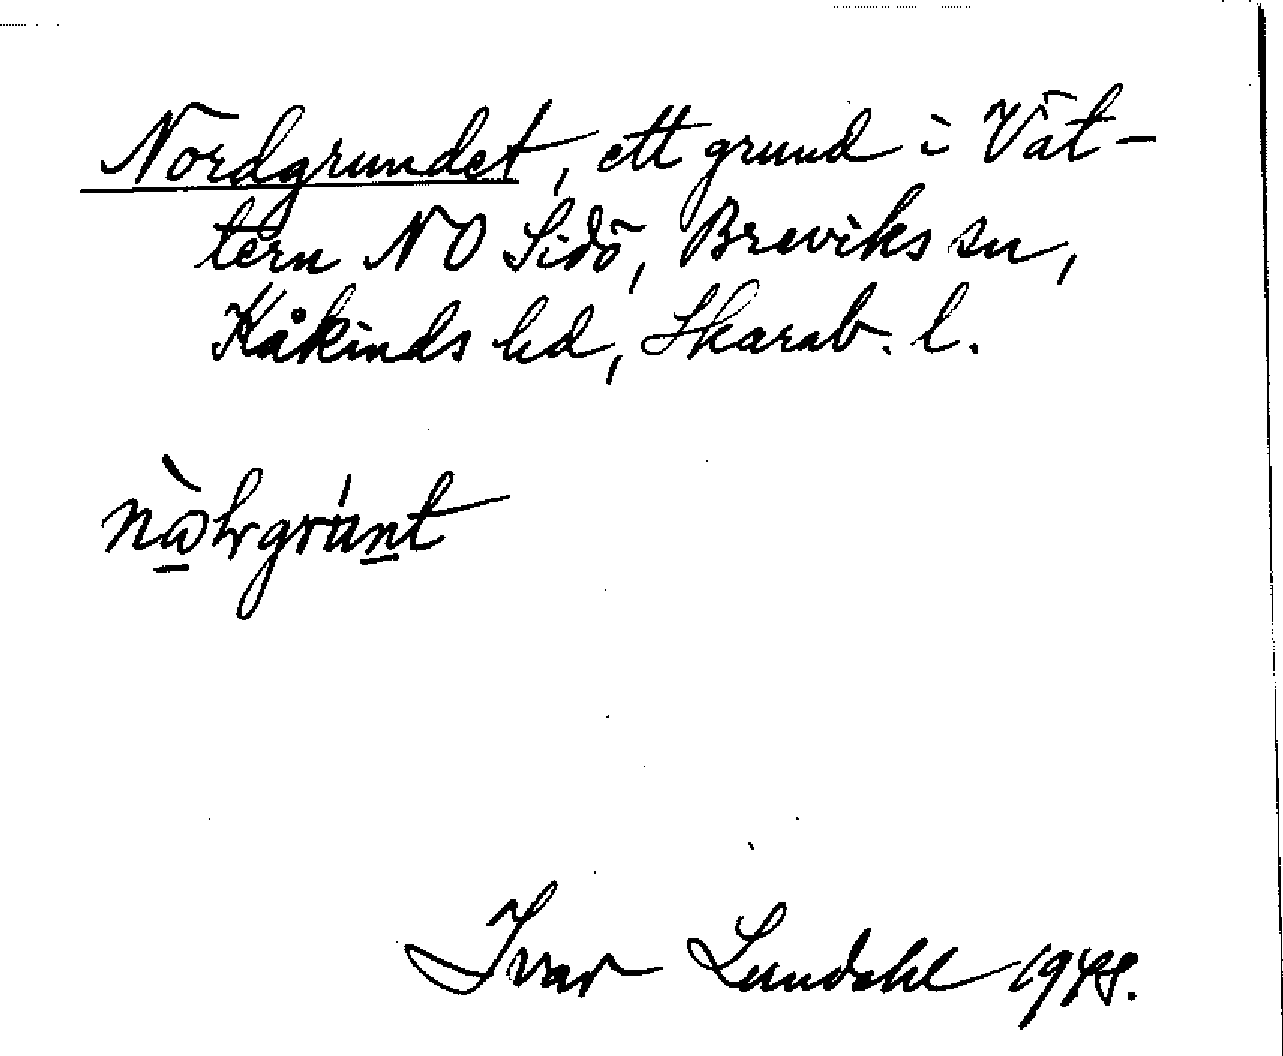 Nordgrundet, ett grund i Vät-
tern NO Sidö, Breviks sn,
Kåkinds hd, Skarab. l.
Ivar Lundahl 1948.